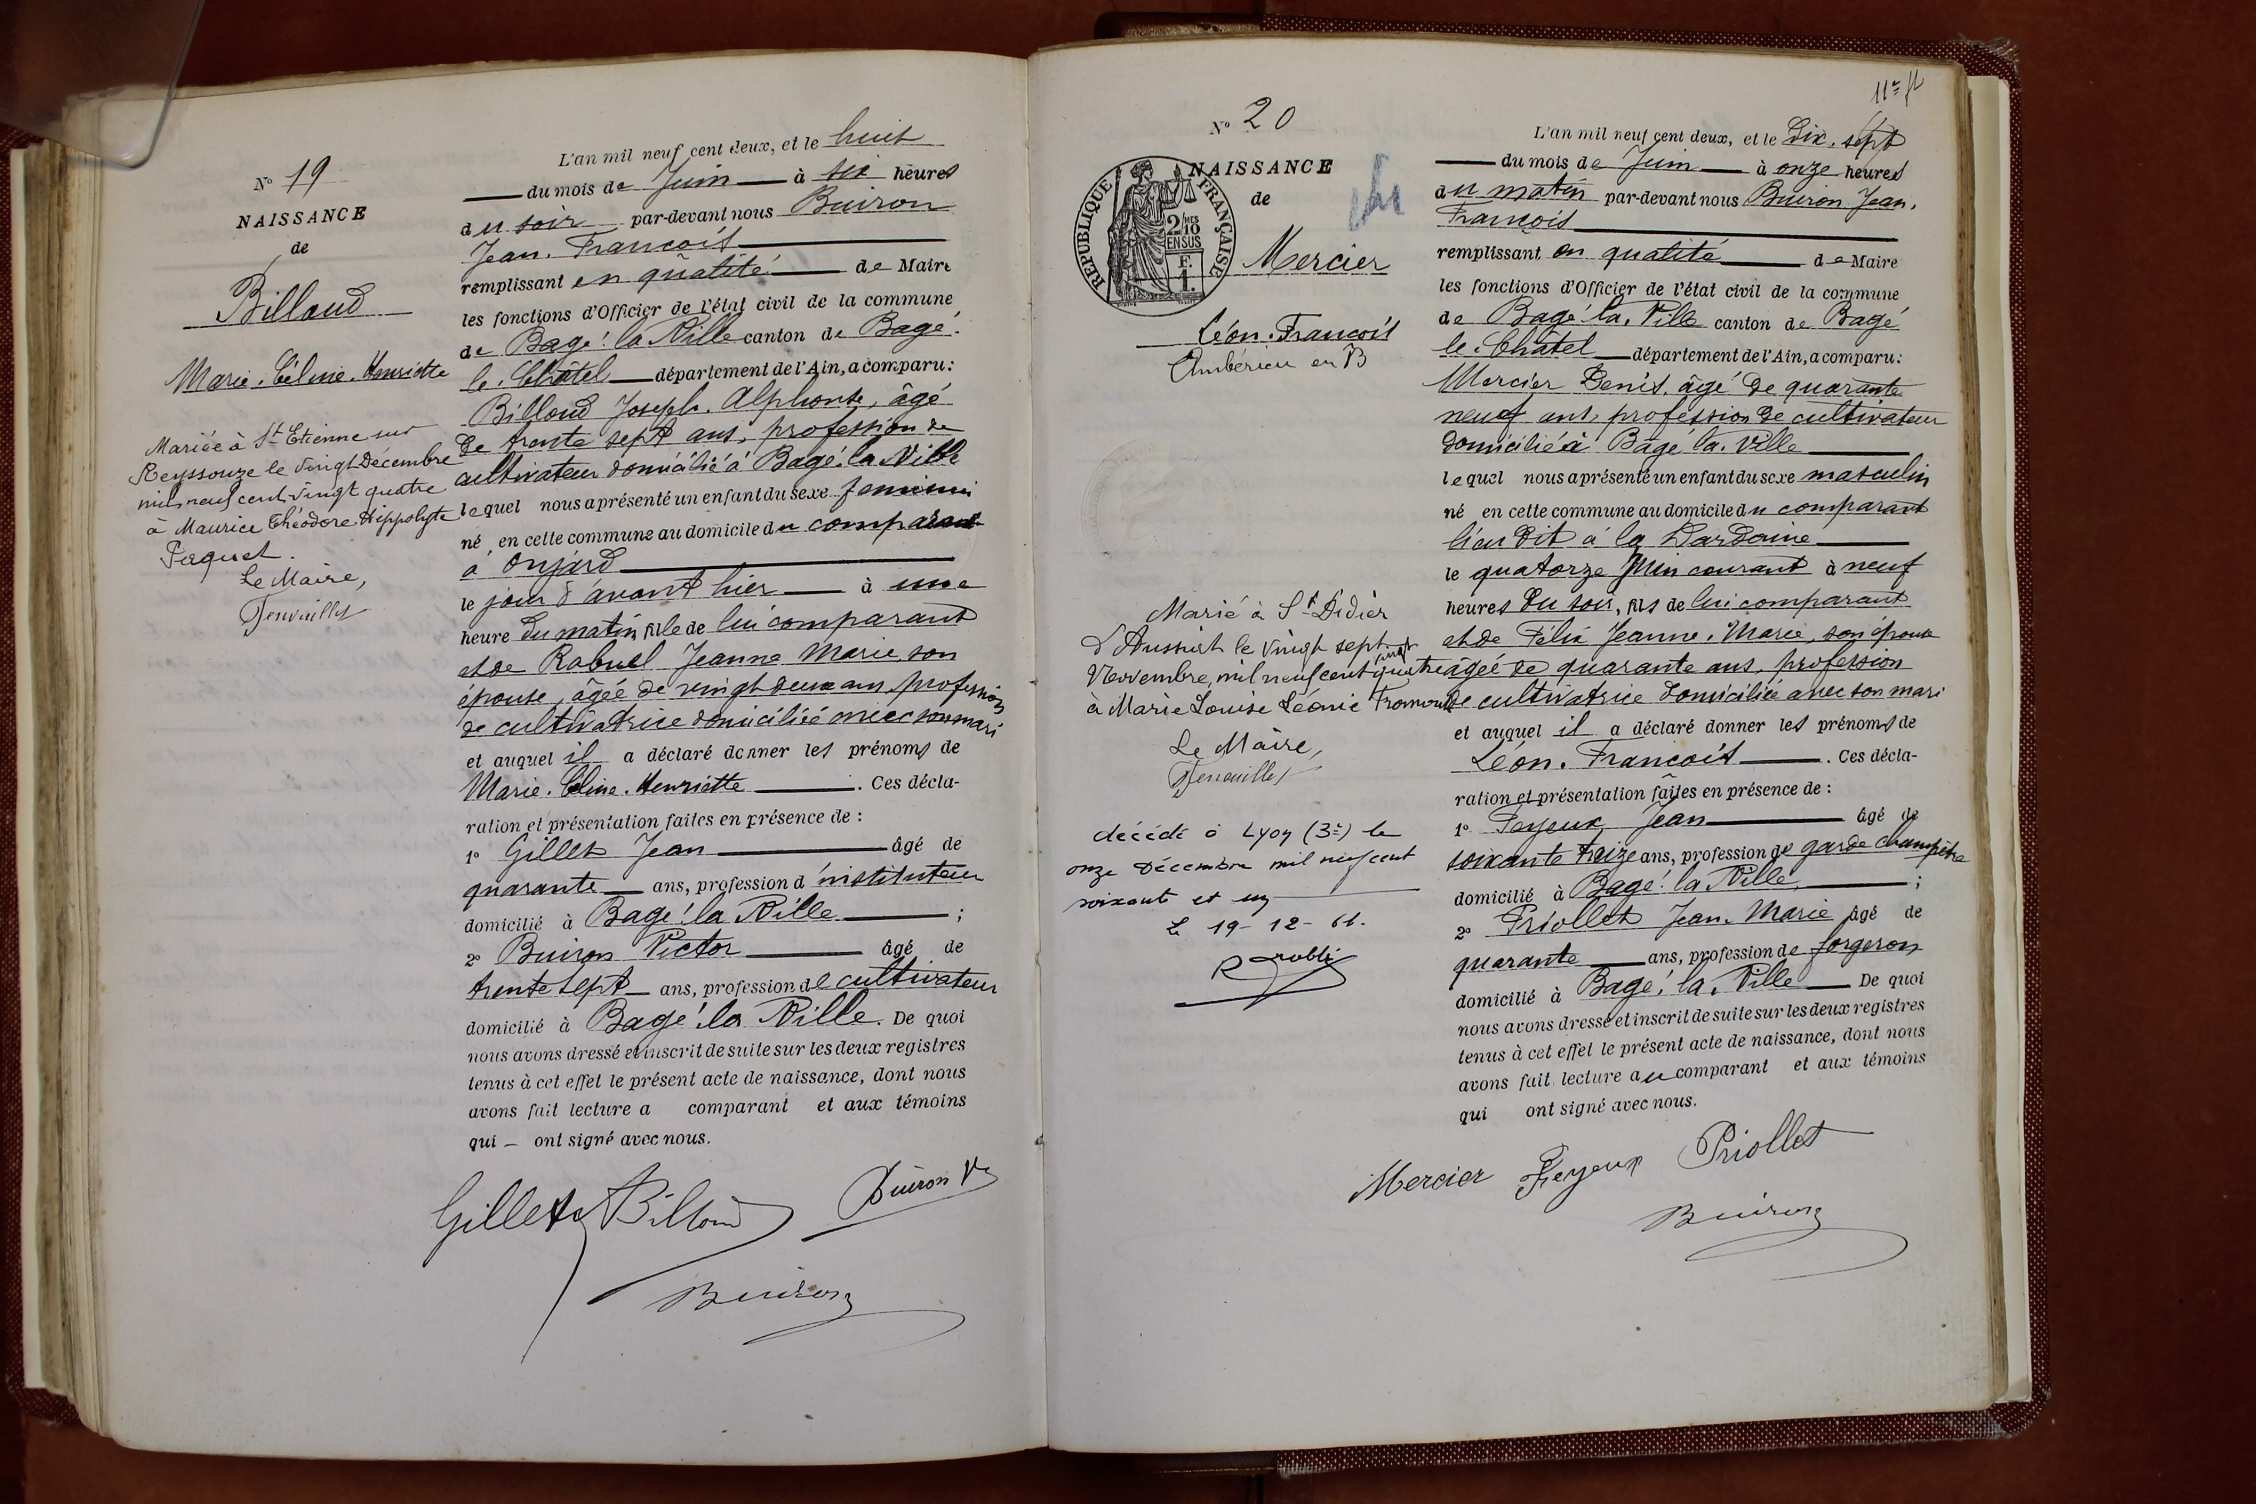 N° 19
NAISSANCE
de
Billoud
Marie. Céline. Henriette
Mariée à St Etienne sur
Reyssouze le vingt Décembre
mil neuf cent vingt quatre
à Maurice Théodore Hippolyte
Le Maire,
L'an mil neuf cent deux, et le huit
du mois de Juin à six heures
du soir par-devant nous Buiron
Jean. François
remplissant en qualité de Maire
les fonctions d'Officier de l'état civil de la commune
de Bagé. la Ville canton de Bagé.
le. Châtel département de l'Ain, a comparu:
Billoud Joseph. Alphonse, âgé
de trente sept ans, profession de
cultivateur domicilié à Bagé. la Ville
lequel nous a présenté un enfant du sexe féminin
né en cette commune au domicile du comparant
à Onjard
le jour d'avant hier à une
heure du matin fille de lui comparant
et de Rabuel Jeanne Marie son
épouse, âgée de vingt deux ans profession
de cultivatrice domiciliée avec son mari
et auquel il a déclaré donner les prénoms de
Marie. Céline. Henriette. Ces décla-
ration et présentation faites en présence de :
1° Gillet Jean âgé de
quarante ans, profession d'instituteur
domicilié à Bagé. la Ville ;
2° Buiron Victor âgé de
trente sept ans, profession de cultivateur
domicilié à Bagé. la Ville. De quoi
nous avons dressé et inscrit de suite sur les deux registres
tenus à cet effet le présent acte de naissance, dont nous
avons fait lecture a comparant et aux témoins
qui – ont signé avec nous.
Gillet Billoud Buiron Vr
Buiron
N° 20
NAISSANCE
de
REPUBLIQUE FRANÇAISE
2/10
EN SUS
F.
1.
Mercier
Léon. François
Ambérieu en B
Marié à St Didier
d'Aussiat le vingt sept
Novembre mil neuf cent vingt quatre
à Marie Louise Léonie
Le Maire,
décédé à Lyon (3e) le
onze Décembre mil neuf cent
soixante et un
Le 19-12-61.
11e ft
L'an mil neuf cent deux, et le Dix. sept
du mois de Juin à onze heures
du matin par-devant nous Buiron Jean.
François
remplissant en qualité de Maire
les fonctions d'Officier de l'état civil de la commune
de Bagé. la. Ville canton de Bagé
le. Châtel département de l'Ain, a comparu:
Mercier Denis, âgé de quarante
neuf ans, profession de cultivateur
domicilié à Bagé la. Ville
lequel nous a présenté un enfant du sexe masculin
né en cette commune au domicile du comparant
lieu dit à la Dardaine
le quatorze Juin courant à neuf
heures du soir, fils de lui comparant
et de Félix Jeanne. Marie, son épouse
âgée de quarante ans, profession
de cultivatrice domiciliée avec son mari
et auquel il a déclaré donner les prénoms de
Léon. François. Ces décla-
ration et présentation faites en présence de :
1° Feyeux Jean âgé de
soixante treize ans, profession de garde champêtre
domicilié à Bagé. la Ville ;
2° Priollet Jean. Marie âgé de
quarante ans, profession de forgeron
domicilié à Bagé. la. Ville De quoi
nous avons dressé et inscrit de suite sur les deux registres
tenus à cet effet le présent acte de naissance, dont nous
avons fait lecture au comparant et aux témoins
qui ont signé avec nous.
Mercier Feyeux Priollet
Buiron